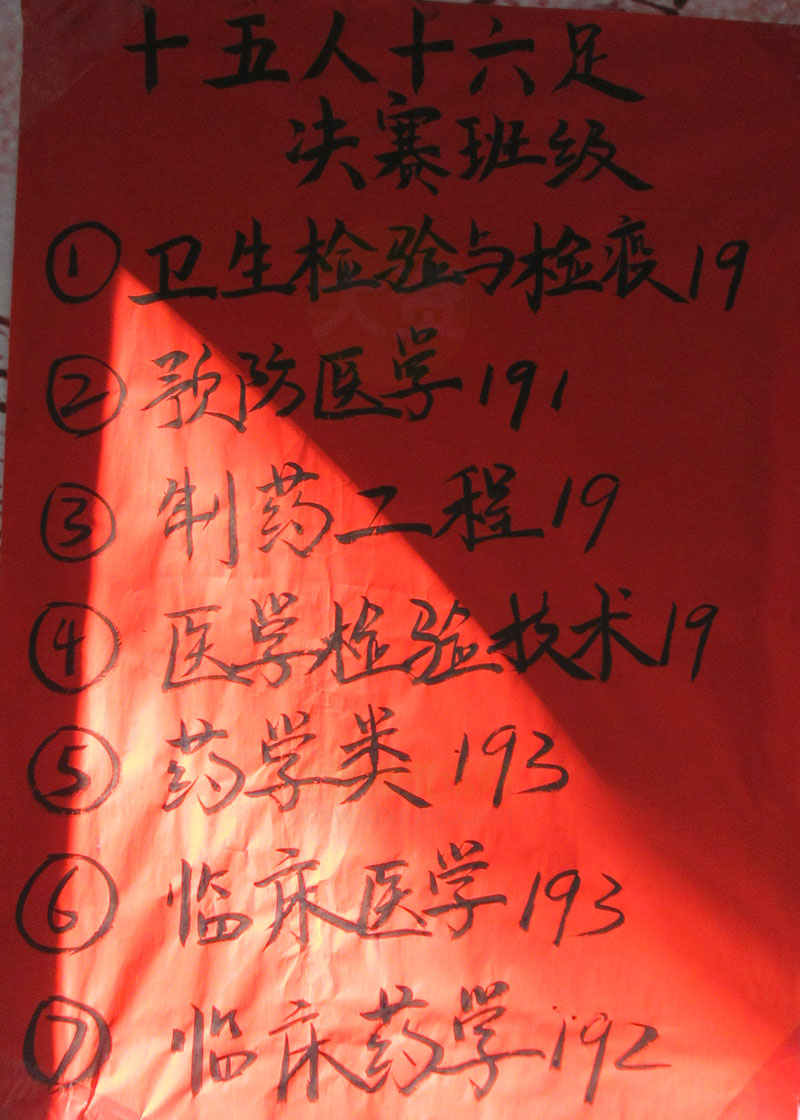 十五人十六足
决赛班级
① 卫生检验与检疫19
② 预防医学191
③ 制药工程19
④ 医学检验技术19
⑤ 药学类193
⑥ 临床医学193
⑦ 临床药学192